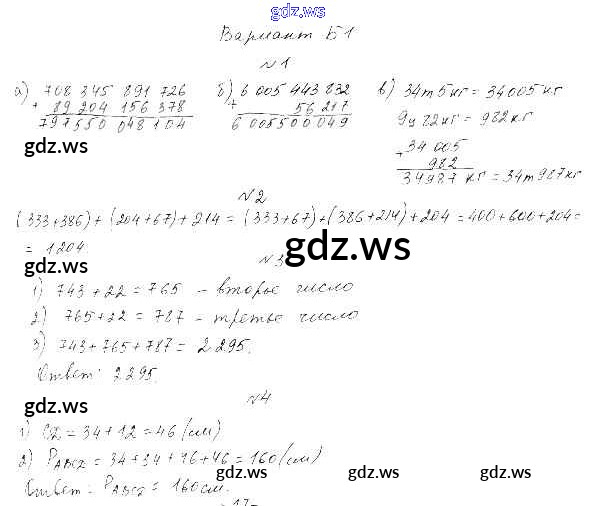 gdz.ws
Вариант Б1
№1
а) 708 345 891 726
+ 89 204 156 378
797550 048104
б) 6 005 443 832
+ 56 217
6 005500 049
в) 34т5кг = 34005кг
9ц82кг = 982кг
+34 005
982
34987 кг = 34т987кг
gdz.ws
№2
(333+386)+(204+67)+214 = (333+67)+(386+214)+204 = 400+600+204=
= 1204
gdz.ws
gdz.ws
№3
1) 743+22=765 – второе число
2) 765+22 = 787 – третье число
3) 743+765+787 = 2295.
Ответ: 2295.
gdz.ws
№4
1) = 34+12=46 (см)
2) = 34+34+46+46=160 (см)
gdz.ws gdz.ws gdz.ws
Ответ: = 160см.